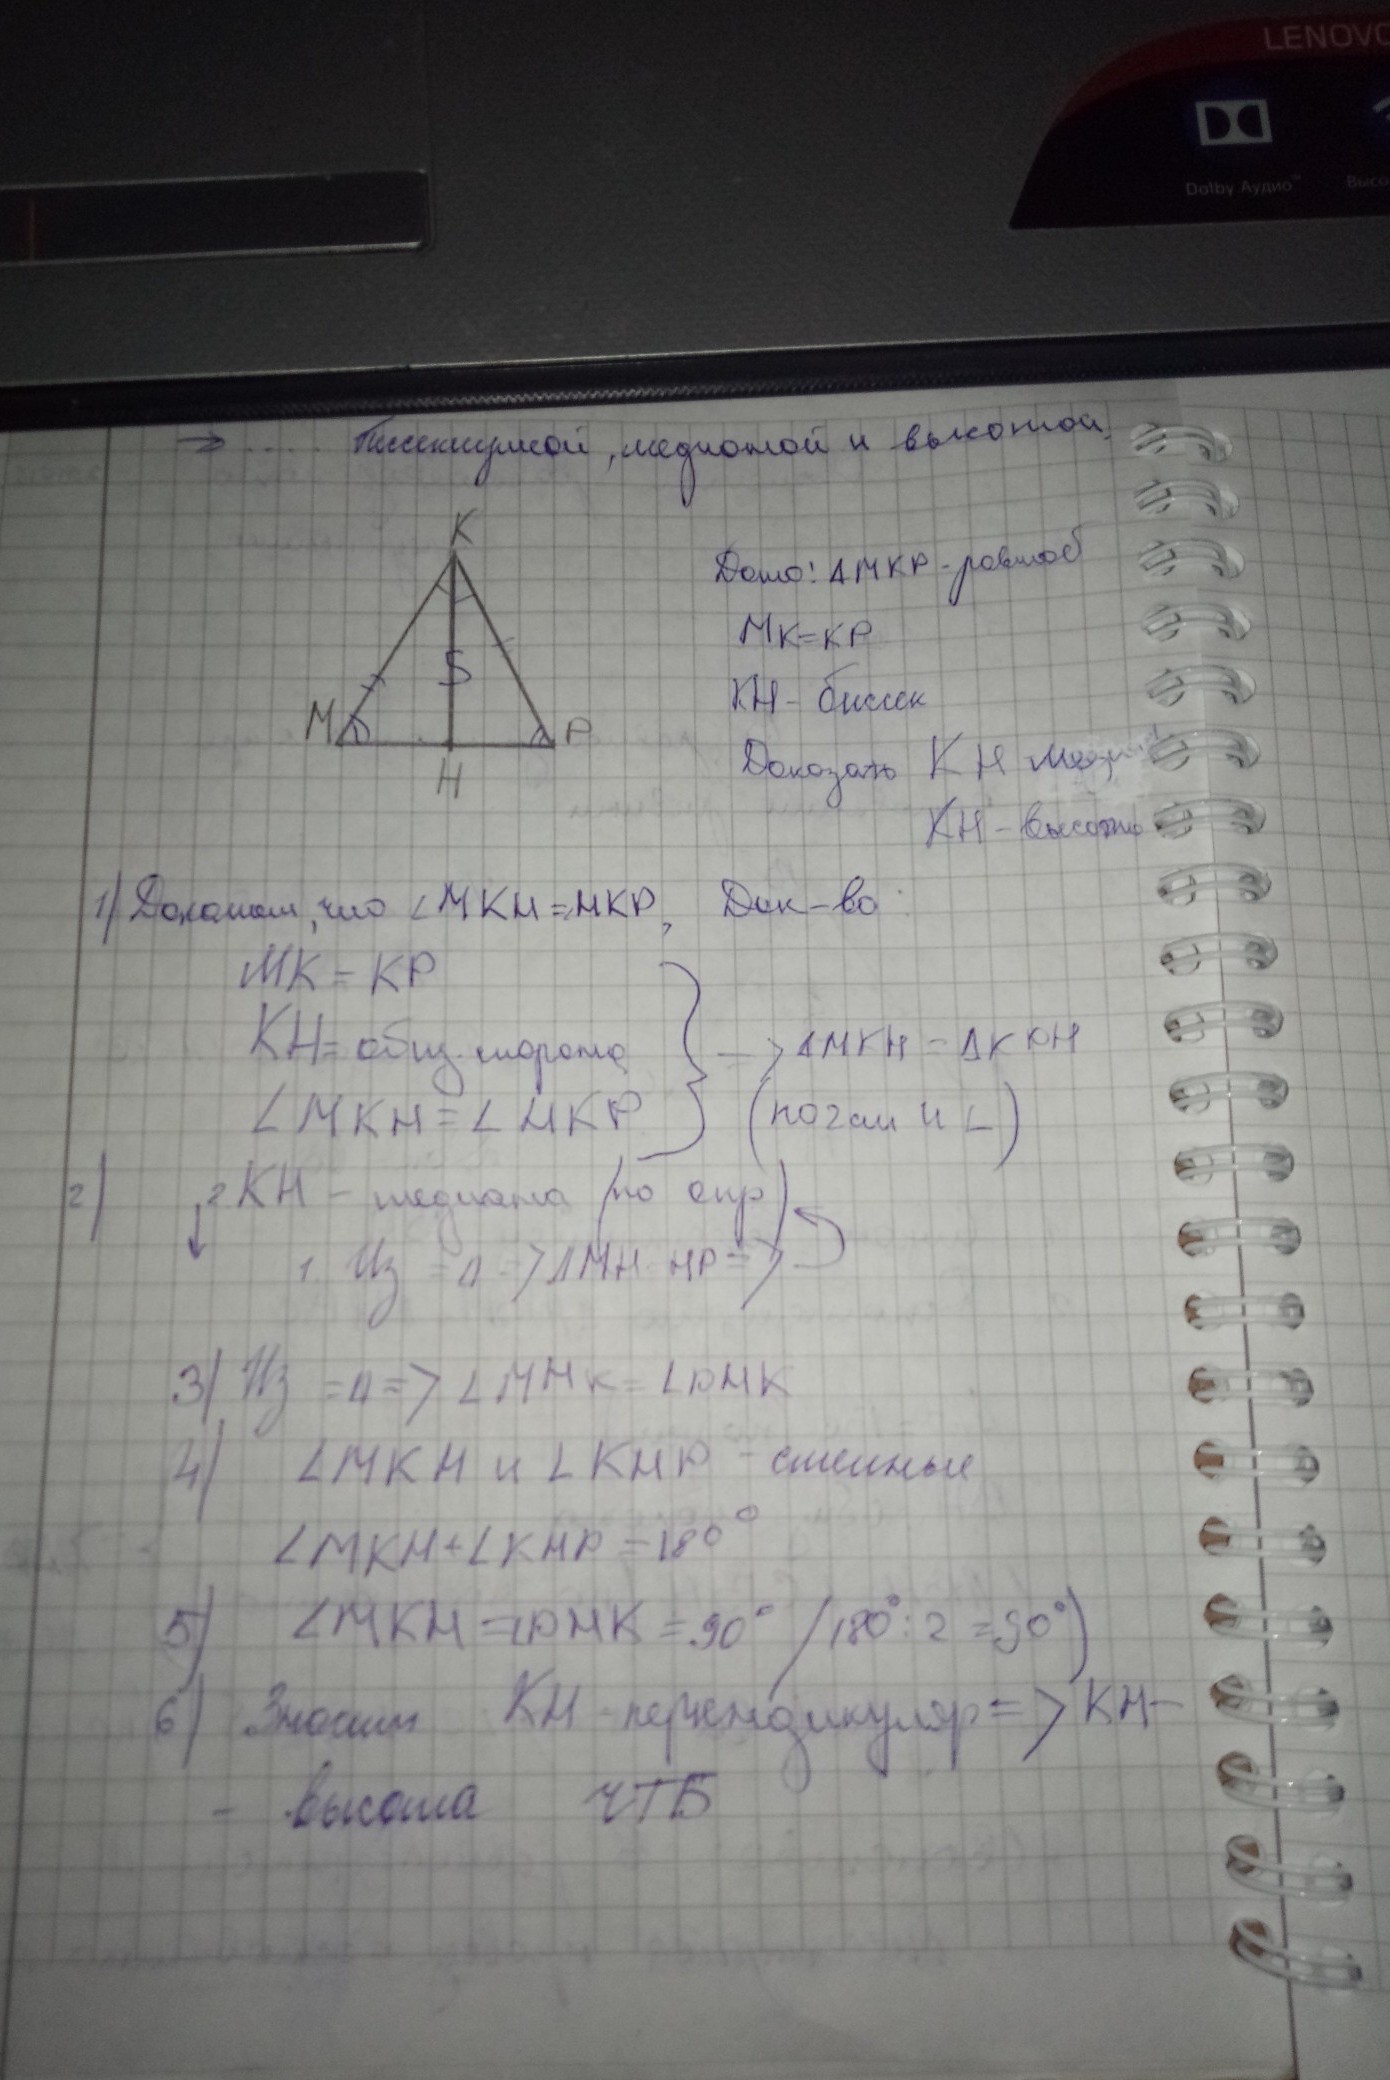 LENOVO
Dolby Аудио™
Высо
=> ..... биссектрисой, медианой и высотой.
K
M
P
H
Дано: ΔMKP - равноб
MK=KP
KH - биссек
Доказать KH мед
KH - высота
1) Докажем, что ∠MKH=HKP, Док-во:
MK = KP
KH= общ. сторона
∠MKH = ∠HKP
=> ΔMKH = ΔKPH
(по 2 сш и ∠)
2) 2 KH - медиана (по опр)
1. Из = Δ => ΔMH HP =>
3) Из = Δ => ∠MHK = ∠PHK
4) ∠MKH и ∠KHP - смежные
∠MKH + ∠KHP = 180°
5) ∠MKH = ∠PHK = 90° (180° : 2 = 90°)
6) Значит KH - перпендикуляр => KH -
- высота ЧТБ